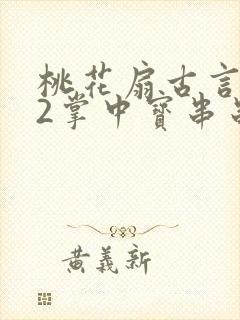 桃花扇古言
2掌中寶串
黃義新